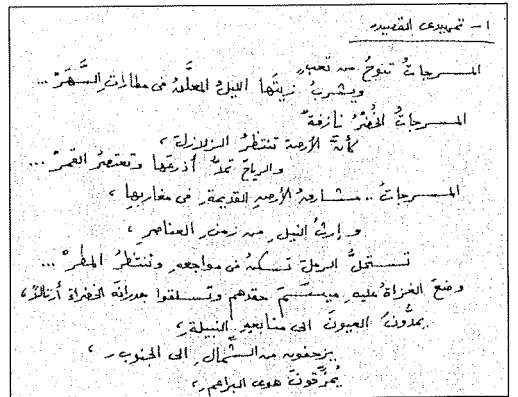 ١- تمهيدى القصيدة
المسرجاتُ تنوحُ من تعبٍ
ويشربُ زيتَها الليلُ المعلَّقُ فى مطاراتِ السَّهَرْ ...
المسرجاتُ الخُضْرُ نازفةٌ
كأنَّ الأرضَ تنتظرُ الزلازلَ ،
والرياحَ تمدُّ أذرعَها وتعتصرُ القمرْ ...
المسرجاتُ .. مشارقُ الأرضِ القديمةِ فى مغاربِها ،
وإرثُ النيلِ من زمنِ العناصرِ ،
تستحلُّ الرملَ تسكنُ فى مواجعهِ وتنتظرُ المطرْ ...
وضعَ الغزاةُ عليهِ ميسمَ حقدهم وتسلقوا جدرانَه الخضراءَ أرتالاً ،
يمدُّونَ العيونَ الى منابعهِ النبيلةِ ،
يزحفون من الشَّمالِ الى الجنوبِ ،
يُمزِّقونَ هوى البراعمِ ،